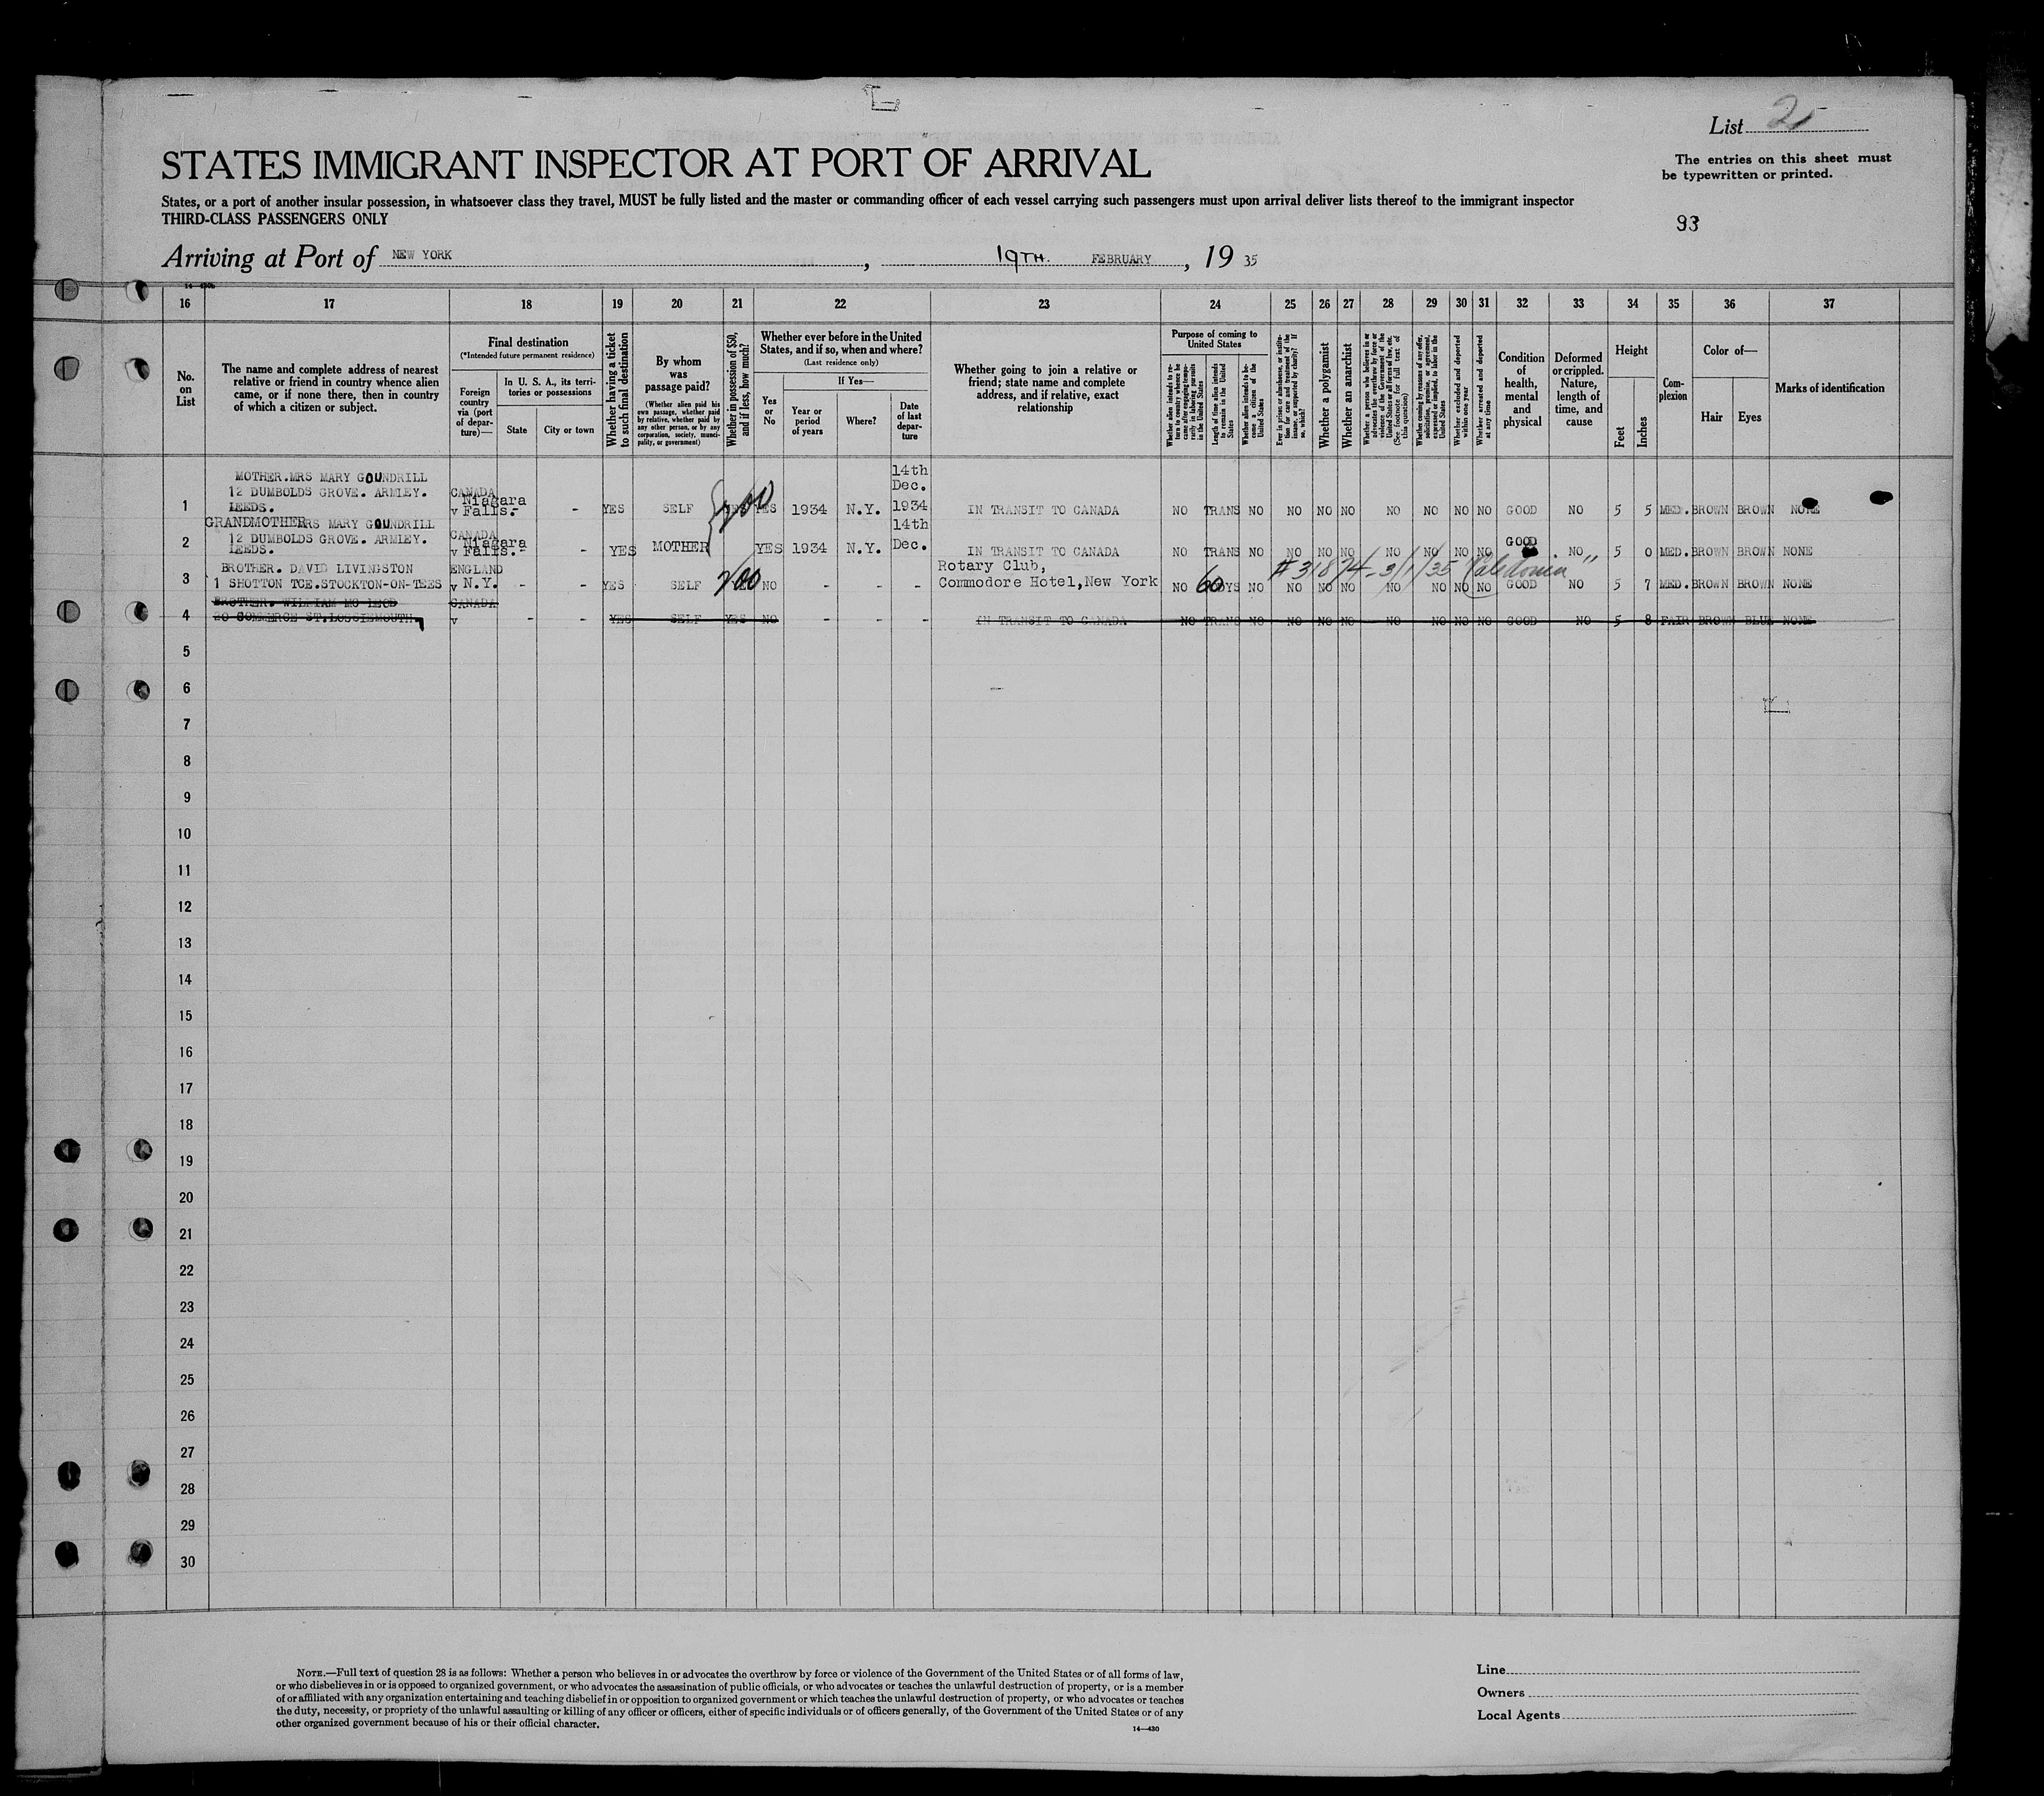 List 2
STATES IMMIGRANT INSPECTOR AT PORT OF ARRIVAL
The entries on this sheet must
be typewritten or printed.
States, or a port of another insular possession, in whatsoever class they travel, MUST be fully listed and the master or commanding officer of each vessel carrying such passengers must upon arrival deliver lists thereof to the immigrant inspector
THIRD-CLASS PASSENGERS ONLY
93
Arriving at Port of NEW YORK, 19TH. FEBRUARY, 19 35
16 17 18 19 20 21 22 23 24 25 26 27 28 29 30 31 32 33 34 35 36 37
No.
on
List
The name and complete address of nearest
relative or friend in country whence alien
came, or if none there, then in country
of which a citizen or subject.
Final destination
(*Intended future permanent residence)
Foreign
country
via (port
of depar-
ture)—
In U. S. A., its terri-
tories or possessions
State
City or town
Whether having a ticket
to such final destination
By whom
was
passage paid?
(Whether alien paid his
own passage, whether paid
by relative, whether paid by
any other person, or by any
corporation, society, munici-
pality, or government)
Whether in possession of $50,
and if less, how much?
Whether ever before in the United
States, and if so, when and where?
(Last residence only)
Yes
or
No
If Yes—
Year or
period
of years
Where?
Date
of last
depar-
ture
Whether going to join a relative or
friend; state name and complete
address, and if relative, exact
relationship
Purpose of coming to
United States
Whether alien intends to re-
turn to country whence he
came after engaging tempo-
rarily in laboring pursuits
in the United States
Length of time alien intends
to remain in the United
States
Whether alien intends to be-
come a citizen of the
United States
Ever in prison or almshouse, or institu-
tion for care and treatment of the
insane, or supported by charity? If
so, which?
Whether a polygamist
Whether an anarchist
Whether a person who believes in or
advocates the overthrow by force or
violence of the Government of the
United States or all forms of law, etc.
(See footnote for full text of
this question)
Whether coming by reasons of any offer,
solicitation, promise, or agreement,
expressed or implied, to labor in the
United States
Whether excluded and deported
within one year
Whether arrested and deported
at any time
Condition
of
health,
mental
and
physical
Deformed
or crippled.
Nature,
length of
time, and
cause
Height
Feet
Inches
Com-
plexion
Color of—
Hair
Eyes
Marks of identification
MOTHER.MRS MARY GOUNDRILL
12 DUMBOLDS GROVE. ARMLEY.
LEEDS.
1 CANADA v Niagara Falls.- - YES SELF YES 1934 N.Y. 14th Dec. 1934 IN TRANSIT TO CANADA NO TRANS NO NO NO NO NO NO NO NO GOOD NO 5 5 MED. BROWN BROWN NONE
GRANDMOTHER MRS MARY GOUNDRILL
12 DUMBOLDS GROVE. ARMLEY.
LEEDS.
2 CANADA v Niagara Falls.- - YES MOTHER YES 1934 N.Y. 14th Dec. IN TRANSIT TO CANADA NO TRANS NO NO NO NO NO NO NO NO GOOD NO 5 0 MED. BROWN BROWN NONE
# 31874-3/1/35 "Caledonia"
BROTHER. DAVID LIVINGSTON
1 SHOTTON TCE.STOCKTON-ON-TEES
3 ENGLAND v N.Y. - - YES SELF 200 NO - - - Rotary Club, Commodore Hotel,New York NO 60 DYS NO NO NO NO NO NO NO NO GOOD NO 5 7 MED. BROWN BROWN NONE
BROTHER. WILLIAM MC LEOD
20 COMMERCE ST.LOSSIEMOUTH.
4 CANADA v - - YES SELF YES NO - - - IN TRANSIT TO CANADA NO TRANS NO NO NO NO NO NO NO NO GOOD NO 5 8 FAIR BROWN BLUE NONE
5
6
7
8
9
10
11
12
13
14
15
16
17
18
19
20
21
22
23
24
25
26
27
28
29
30
NOTE.—Full text of question 28 is as follows: Whether a person who believes in or advocates the overthrow by force or violence of the Government of the United States or of all forms of law,
or who disbelieves in or is opposed to organized government, or who advocates the assassination of public officials, or who advocates or teaches the unlawful destruction of property, or is a member
of or affiliated with any organization entertaining and teaching disbelief in or opposition to organized government or which teaches the unlawful destruction of property, or who advocates or teaches
the duty, necessity, or propriety of the unlawful assaulting or killing of any officer or officers, either of specific individuals or of officers generally, of the Government of the United States or of any
other organized government because of his or their official character.
14—430
Line
Owners
Local Agents